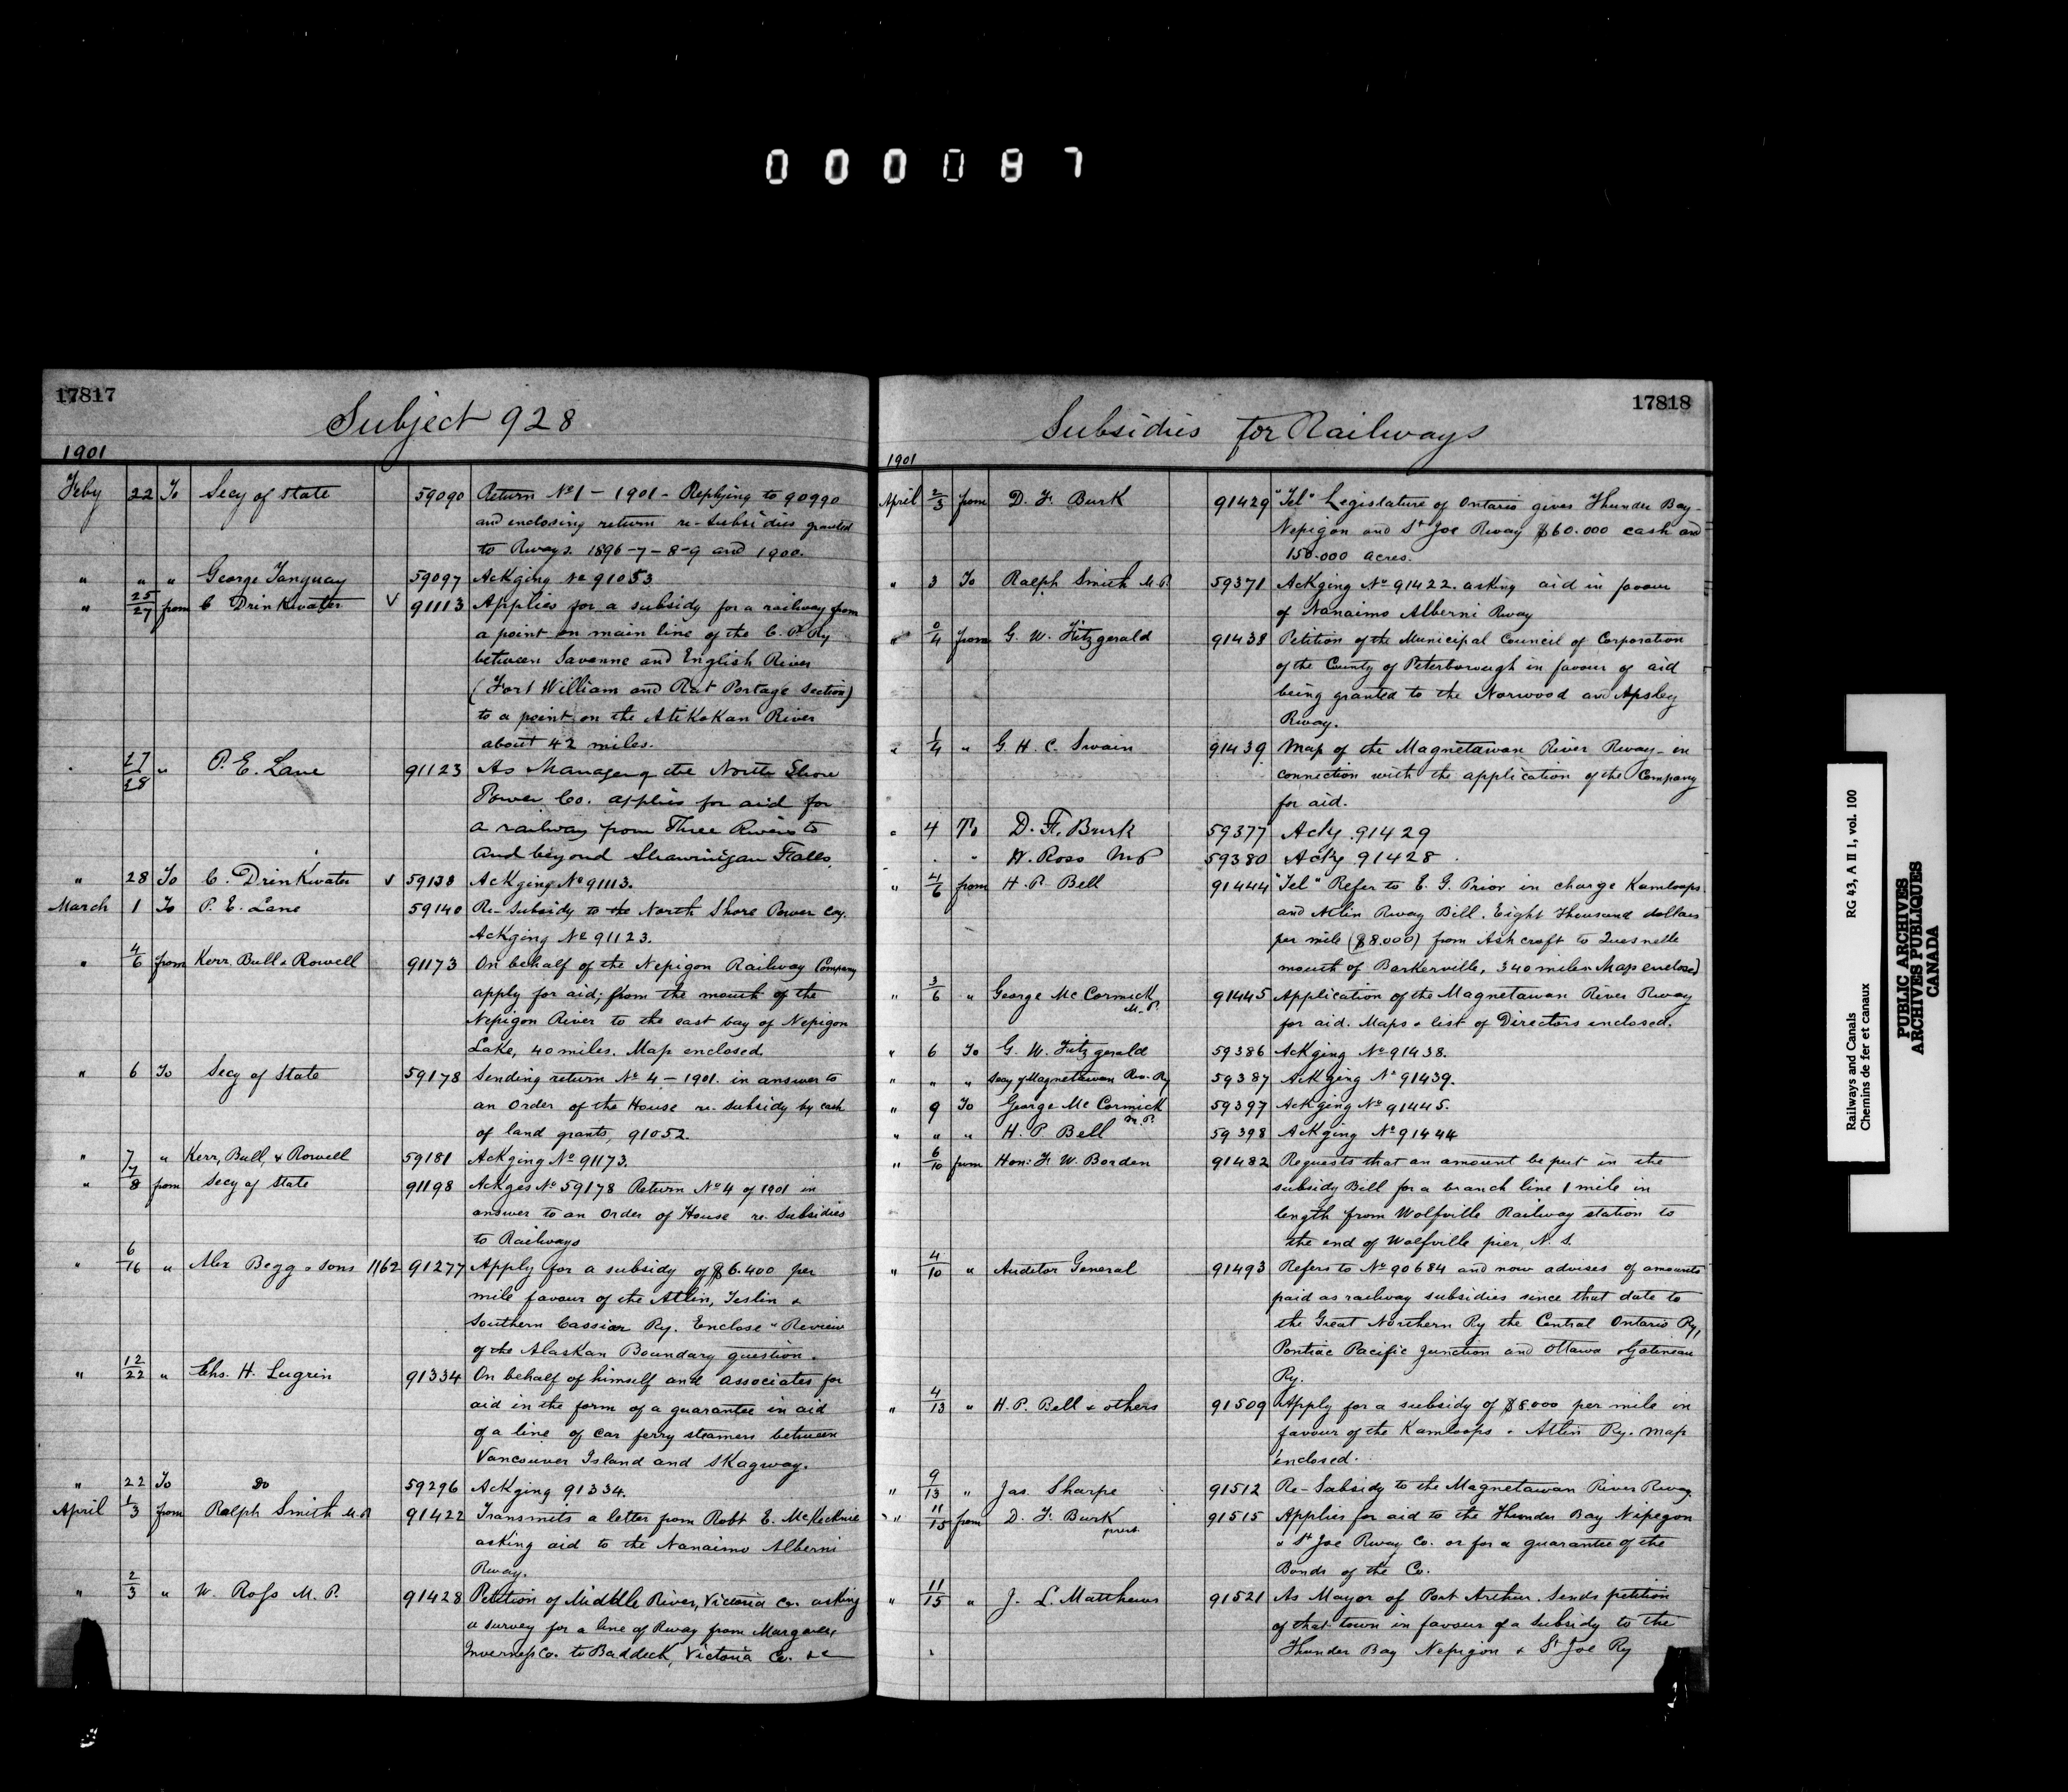 000087
17817
Subject 928
1901
Feby 22 To Secy of State 59090 Return No 1 - 1901 - Replying to 90990
and enclosing return re-Subsidies granted
to Rways. 1896-7-8-9 and 1900.
" " " George Tanguay 59097 Ackging No 91053
" 25/27 from C Drinkwater V 91113 Applies for a subsidy for a railway from
a point on main line of the C. P. Ry
between Savanne and English River
(Fort William and Rat Portage section)
to a point on the Atikokan River
about 42 miles.
" 27/28 " P. E. Lane 91123 As Manager of the North Shore
Power Co. applies for aid for
a railway from Three Rivers to
and beyond Shawinigan Falls.
" 28 To C. Drinkwater V 59138 Ackging No 91113.
March 1 To P. E. Lane 59140 Re-Subsidy to the North Shore Power Coy.
Ackging No 91123.
" 4/6 from Kerr, Bull & Rowell 91173 On behalf of the Nepigon Railway Company
apply for aid; from the mouth of the
Nepigon River to the east bay of Nepigon
Lake, 40 miles. Map enclosed.
" 6 To Secy of State 59178 Sending return No 4 - 1901. in answer to
an Order of the House re. subsidy by cash
of land grants, 91052.
" 7 " Kerr, Bull, & Rowell 59181 Ackging No 91173.
" 7/8 from Secy of State 91198 Ackges No 59178 Return No 4 of 1901 in
answer to an Order of House re. Subsidies
to Railways
" 6/16 " Alex Begg & Sons 1162 91277 Apply for a subsidy of $6.400 per
mile favour of the Atlin, Teslin &
Southern Cassiar Ry. Enclose "Review
of the Alaskan Boundary question.
" 12/22 " Chs. H. Lugrin 91334 On behalf of himself and associates for
aid in the form of a guarantee in aid
of a line of car ferry steamers between
Vancouver Island and Skagway.
" 22 To Do 59296 Ackging 91334.
April 1/3 from Ralph Smith M.P. 91422 Transmits a letter from Robt E. McKechnie
asking aid to the Nanaimo Alberni
Rway.
" 2/3 " W. Ross M. P. 91428 Petition of Middle River, Victoria Co. asking
a survey for a line of Rway from Margaree
Inverness Co. to Baddeck, Victoria Co. &c
17818
Subsidies for Railways
1901
April 2/3 from D. F. Burk 91429 "Tel" Legislature of Ontario gives Thunder Bay -
Nepigon and St Joe Rway $60.000 cash and
150.000 acres.
" 3 To Ralph Smith M.P. 59371 Ackging No 91422. asking aid in favour
of Nanaimo Alberni Rway
" 0/4 from G. W. Fitzgerald 91438 Petition of the Municipal Council of Corporation
of the County of Peterborough in favour of aid
being granted to the Norwood and Apsley
Rway.
" 1/4 " G. H. C. Swain 91439 Map of the Magnetawan River Rway - in
connection with the application of the Company
for aid.
" 4 To D. F. Burk 59377 Ackg 91429
" " W. Ross MP 59380 Ackg 91428
" 4/6 from H. P. Bell 91444 "Tel" Refer to E. G. Prior in charge Kamloops
and Atlin Rway Bill. Eight Thousand dollars
per mile ($8.000) from Ashcroft to Quesnelle
mouth of Barkerville, 340 miles. Map enclosed
" 3/6 " George McCormick M.P. 91445 Application of the Magnetawan River Rway
for aid. Maps & list of Directors enclosed.
" 6 To G. W. Fitzgerald 59386 Ackging No 91438.
" " " Secy of Magnetawan Riv. Ry 59387 Ackging No 91439.
" 9 To George McCormick M.P. 59397 Ackging No 91445.
" " " H. P. Bell 59398 Ackging No 91444
" 6/10 from Hon: F. W. Borden 91482 Requests that an amount be put in the
subsidy Bill for a branch line 1 mile in
length from Wolfville Railway station to
the end of Wolfville pier, N. S.
" 4/10 " Auditor General 91493 Refers to No 90684 and now advises of amounts
paid as railway subsidies since that date to
the Great Northern Ry the Central Ontario Ry,
Pontiac Pacific Junction and Ottawa & Gatineau
Ry.
" 4/13 " H. P. Bell & others 91509 Apply for a subsidy of $8000 per mile in
favour of the Kamloops & Atlin Ry. Map
enclosed.
" 9/13 " Jas. Sharpe 91512 Re-Subsidy to the Magnetawan River Rway.
" 11/15 from D. F. Burk prest 91515 Applies for aid to the Thunder Bay Nipegon
& St Joe Rway Co. or for a guarantee of the
Bonds of the Co.
" 11/15 " J. L. Matthews 91521 As Mayor of Port Arthur. Sends petition
of that town in favour of a subsidy to the
Thunder Bay Nepigon & St Joe Ry
Railways and Canals RG 43, A II 1, vol. 100
Chemins de fer et canaux
PUBLIC ARCHIVES
ARCHIVES PUBLIQUES
CANADA